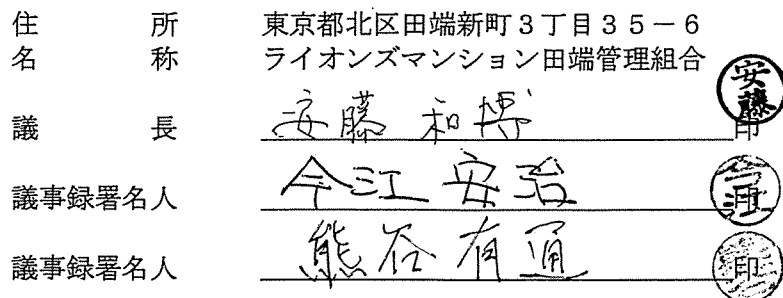 住所 東京都北区田端新町3丁目35-6
名称 ライオンズマンション田端管理組合
議長 安藤 和博 印 安藤
議事録署名人 今江 安治 印 今江
議事録署名人 熊谷 有通 印